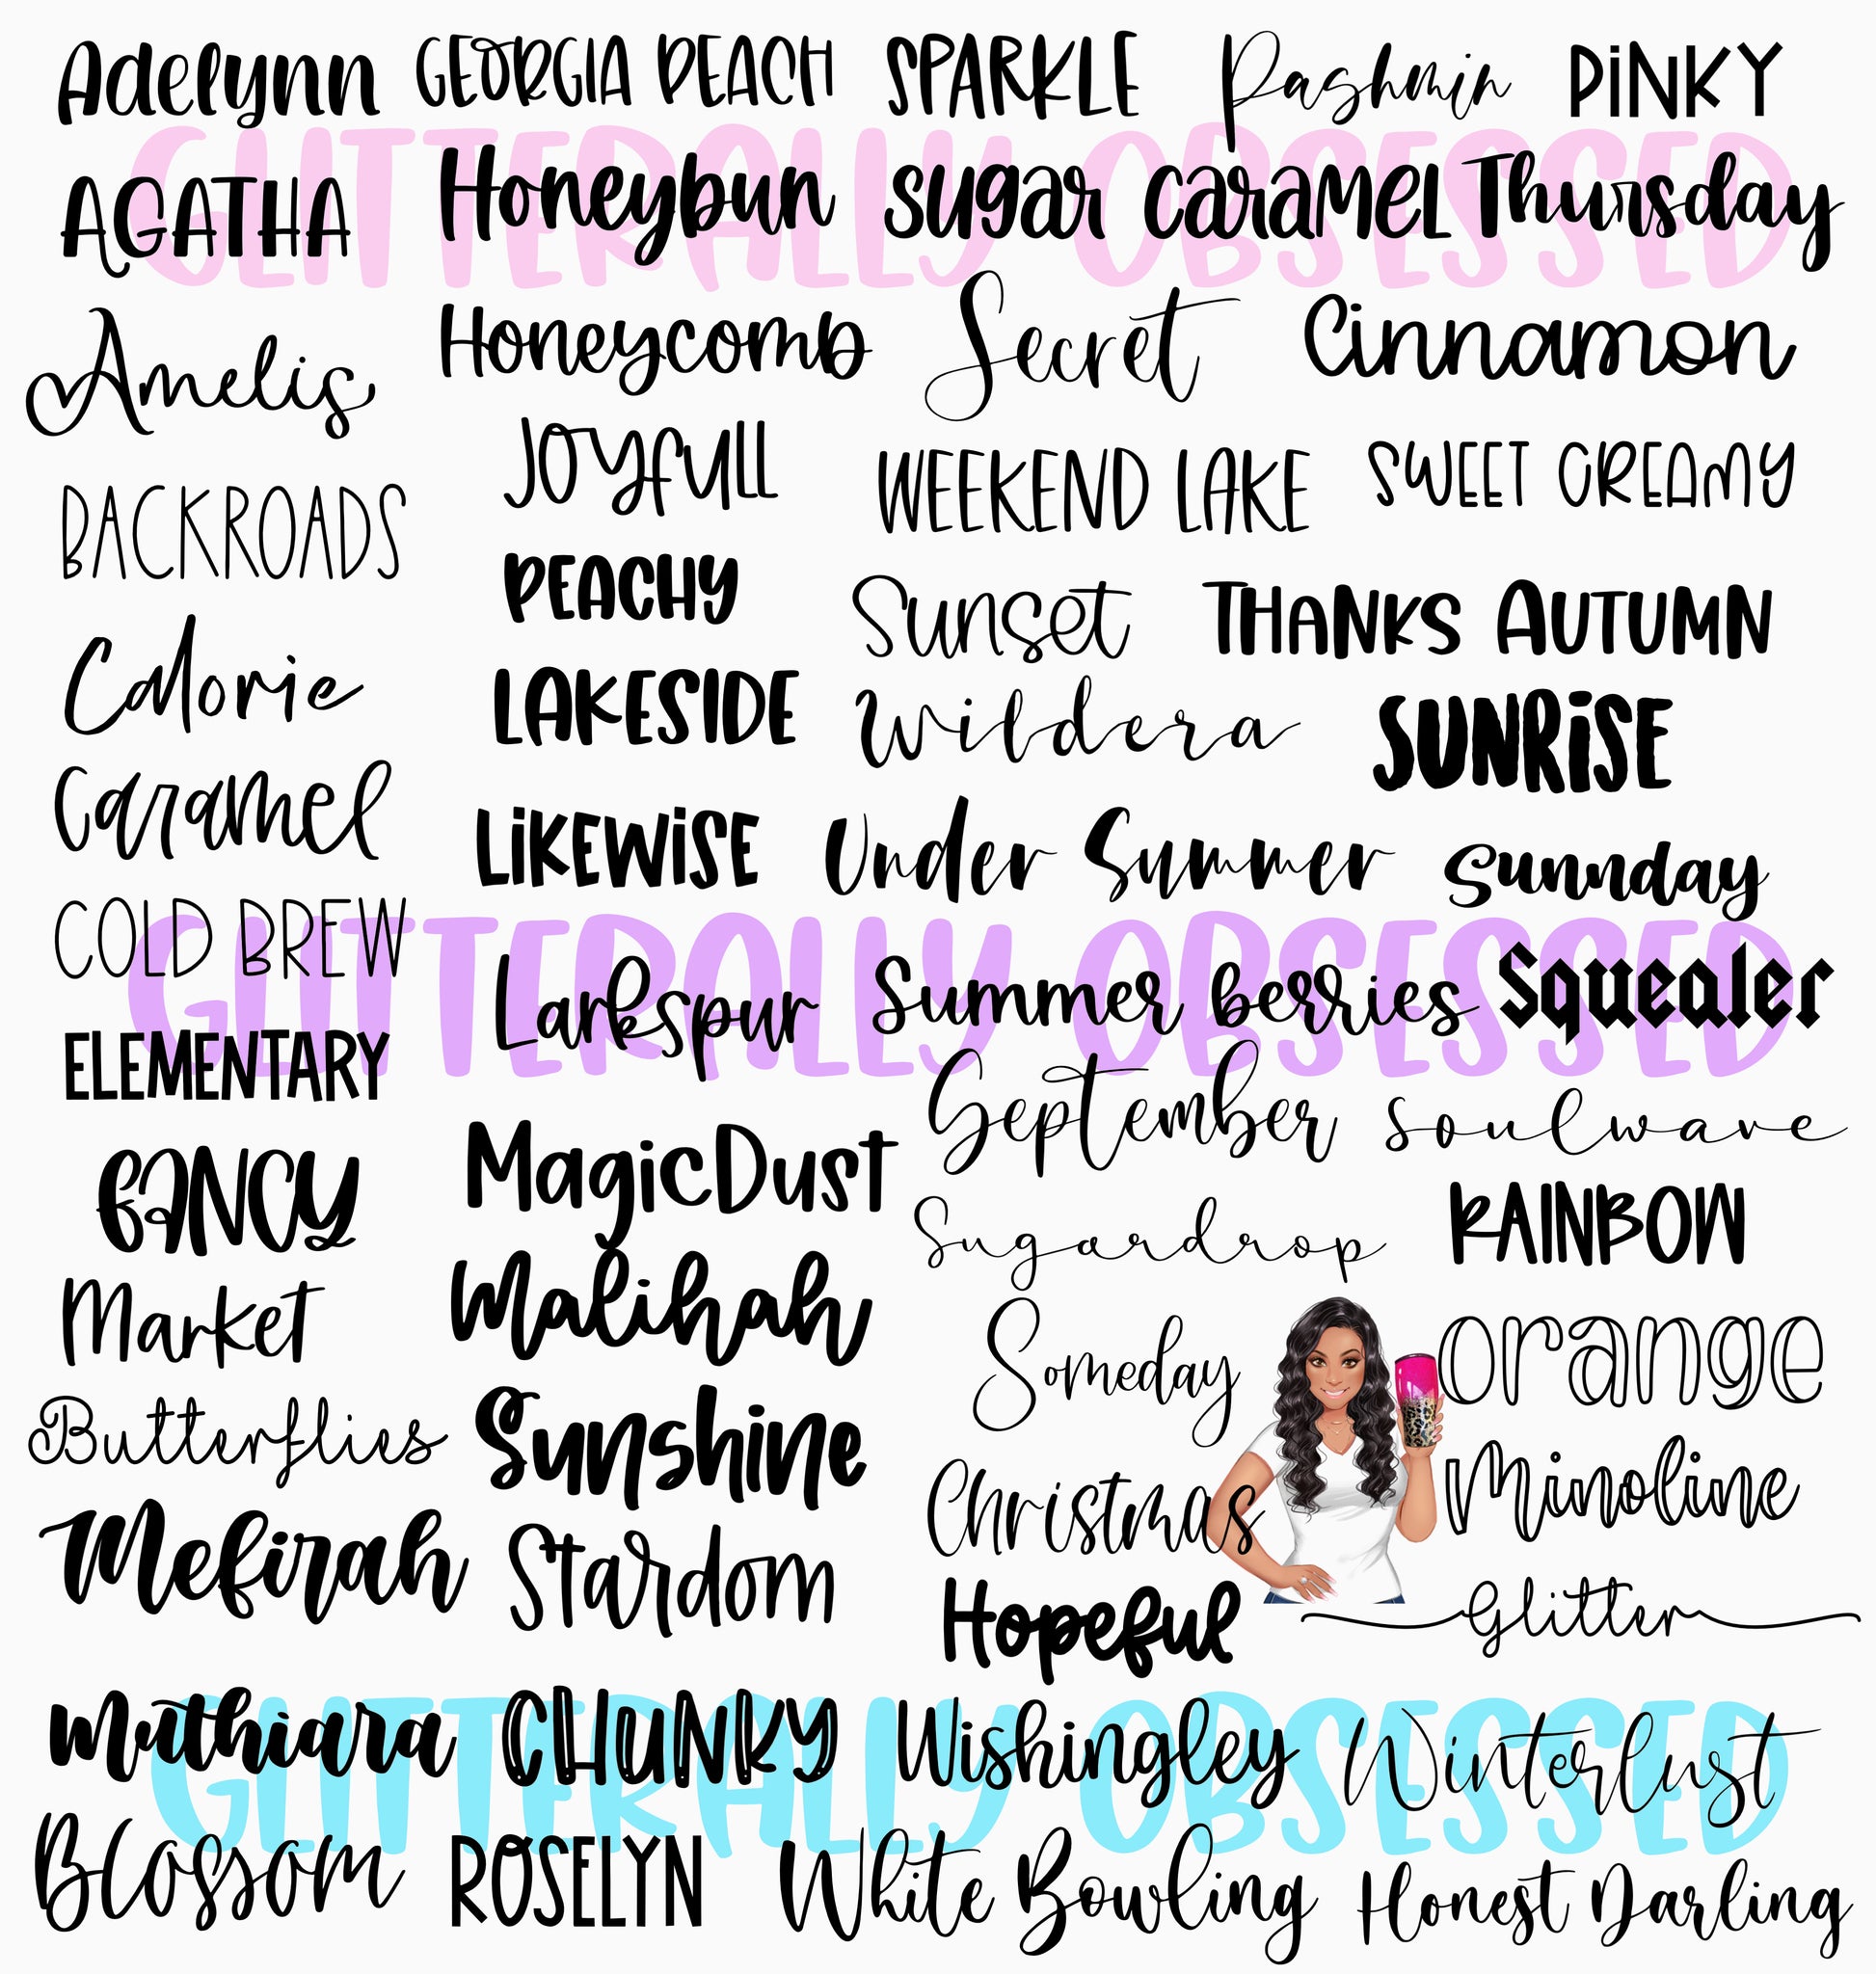 Adelynn GEORGIA PEACH SPARKLE Pashmin PiNKY
GLITTERALLY OBSESSED
AGATHA Honeybun sugar caramel Thursday
Amelis Honeycomb Secret Cinnamon
JOYFULL WEEKEND LAKE SWEET CREAMY
BACKROADS PEACHY Sunset THANKS AUTUMN
Calorie LAKESIDE Wildera SUNRiSE
Caramel LiKEWiSE Under Summer Sunnday
COLD BREW
GLITTERALLY OBSESSED
Larkspur Summer berries Squealer
ELEMENTARY September Soulwave
FANCY MagicDust Sugardrop RAINBOW
Market Malihah Someday orange
Butterflies Sunshine Christmas Minoline
Mefirah Stardom Hopeful Glitter
Muthiara CHUNKY Wishingley Winterlust
GLITTERALLY OBSESSED
Blossom ROSELYN White Bowling Honest Darling